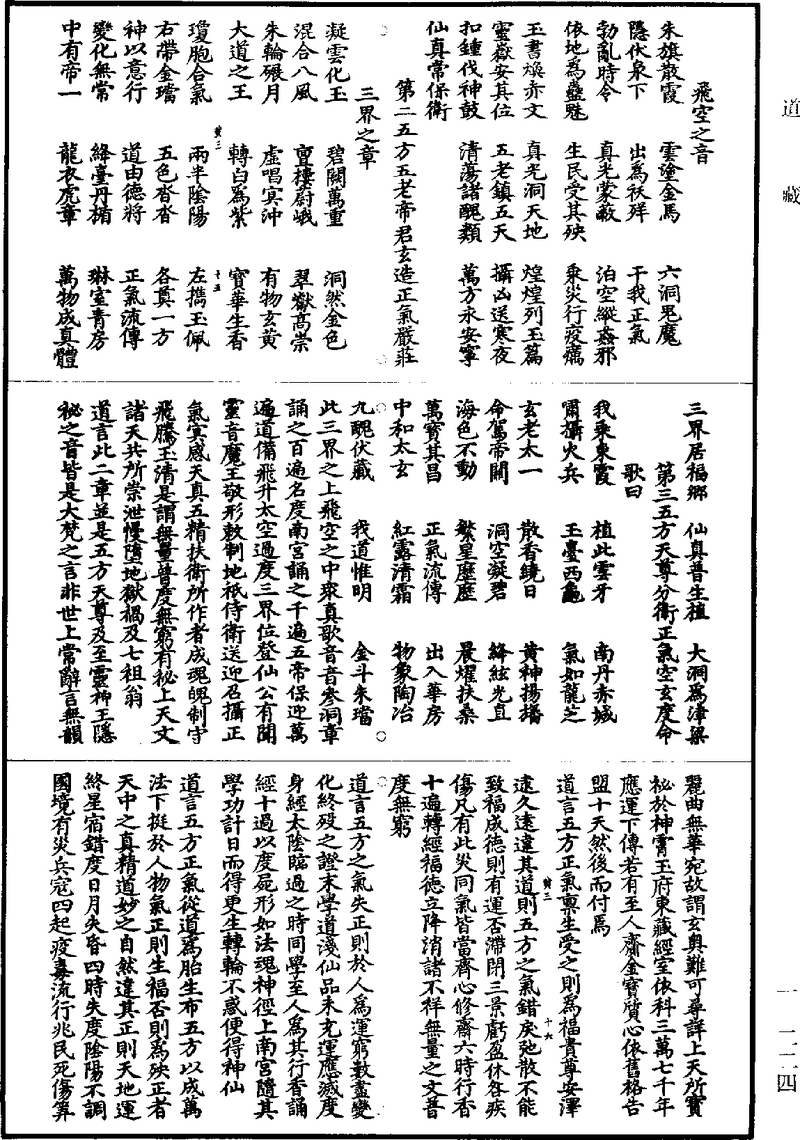 道藏
飛空之音
朱旗散霞　雲塗金馬　六洞鬼魔
隱伏泉下　出為祅祥　干我正氣
勃亂時令　真光蒙蔽　泊空縱姦邪
依地為蠱魅　生民受其殃　乘炎行疫癘
玉書煥赤文　真光洞天地　煌煌列玉篇
靈嶽安其位　五老鎮五天　攝凶送寒夜
扣鍾伐神鼓　清蕩諸醜類　萬方永安寧
仙真常保衛
第二五方五老帝君玄造正氣嚴莊
三界之章
凝雲化玉　碧闕萬重　洞然金色
混合八風　亶樓蔚峨　翠嶽高崇
朱輪碾月　虛唱冥沖　有物玄黃
大道之王　轉白為紫　寶華生香
瓊胞合氣　兩半陰陽　左攜玉佩
黃三　十五
右帶金璫　五色沓沓　各奠一方
神以意行　道由德將　正氣流傳
變化無常　絳臺丹楯　琳室青房
中有帝一　龍衣虎章　萬物成真體
三界居福鄉　仙真普生植　大洞為津梁
第三五方天尊分衛正氣空玄度命
歌曰
我乘東霞　植此雲牙　南丹赤城
爾攝火兵　玉臺西龜　氣如龍芝
玄老太一　散香繞日　黃神揚旛
命駕帝關　洞空凝碧　絳紘光直
海色不動　繁星歷歷　晨燿扶桑
萬寶其昌　正氣流傳　出入華房
中和太玄　紅露清霜　物象陶冶
九醜伏藏　我道惟明　金斗朱璫
此三界之上飛空之中眾真歌音音參洞章
誦之百遍名度南宮誦之千遍五帝保迎萬
遍道備飛升太空過度三界位登仙公有聞
靈音魔王敬形敕制地祇侍衛送迎召攝正
氣冥感天真五精扶衛所作者成魂魄制守
飛騰玉清是謂無量普度無窮有祕上天文
諸天共所崇泄慢墮地獄禍及七祖翁
道言此二章並是五方天尊及至靈神王隱
祕之音皆是大梵之言非世上常辭言無韻
麗曲無華宛故謂玄奧難可尋詳上天所寶
祕於神霄玉府東藏經室依科三萬七千年
應運下傳若有至人齎金寶質心依舊格告
盟十天然後而付焉
道言五方正氣稟生受之則為福貴尊安澤
黃三　十六
逮久遠違其道則五方之氣錯戾弛散不能
致福成德則有運否滯閉三景虧盈休咎疾
傷凡有此災同氣皆當齊心修齋六時行香
十遍轉經福德立降消諸不祥無量之文普
度無窮
道言五方之氣失正則於人為運窮數盡變
化終歿之證末學道淺仙品未充運應滅度
身經太陰臨過之時同學至人為其行香誦
經十過以度屍形如法魂神徑上南宮隨其
學功計日而得更生轉輪不惑便得神仙
道言五方正氣從道為胎生布五方以成萬
法下挺於人物氣正則生福否則為殃正者
天中之真精道妙之自然違其正則天地運
終星宿錯度日月失昏四時失度陰陽不調
國境有災兵寇四起疫毒流行兆民死傷筭
一　二二四